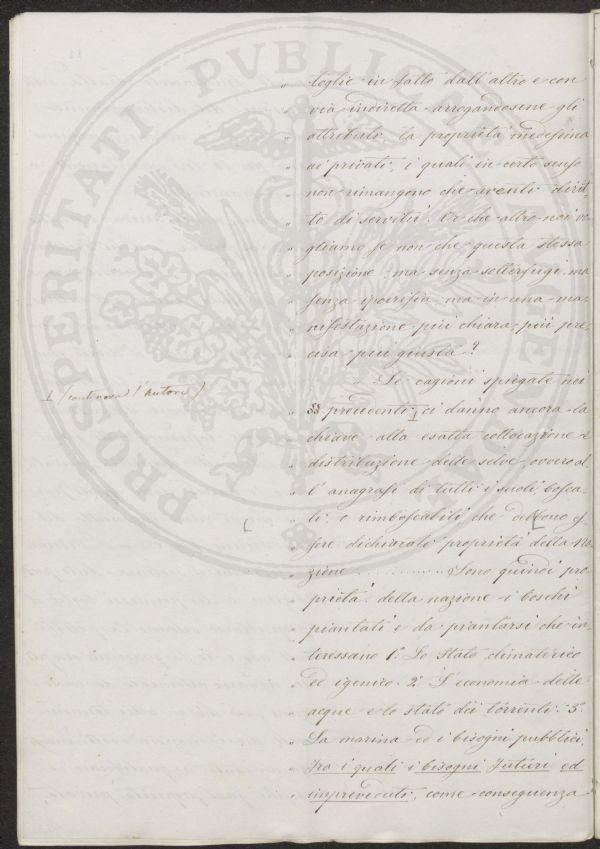 PROSPERITATI PVBLICAE
„ toglie in fatto dall'altro e con
„ via indiretta arrogandosene gli
„ attributi la proprietà medesima
„ ai privati, i quali in certo senso
„ non rimangono che aventi dirit-
„ to di servitù. Or che altro noi vo-
„ gliamo se non che questa stessa
„ posizione: ma senza sotterfugi, ma
„ senza ipocrisia, ma in una ma-
„ nifestazione più chiara, più pre-
„ cisa più giusta?
„ Le cagioni spiegate nei
⊥ (continova l'autore)
„ §§ precedenti ⊥ ci danno ancora la
„ chiave alla esatta collocazione e
„ distribuzione delle selve, ovvero al-
„ l'anagrafi di tutti i suoli bosca-
„ ti o rimboscabili che debbono es-
„ sere dichiarati proprietà della na-
„ zione ............ Sono quindi pro-
„ prietà della nazione i boschi
„ piantati e da piantarsi che in-
„ teressano 1.° Lo stato climaterico
„ ed igenico. 2.° L'economia delle
„ acque e lo stato dei torrenti. 3.°
„ La marina ed i bisogni pubblici,
„ fra i quali i bisogni futuri ed
„ impreveduti, come conseguenza